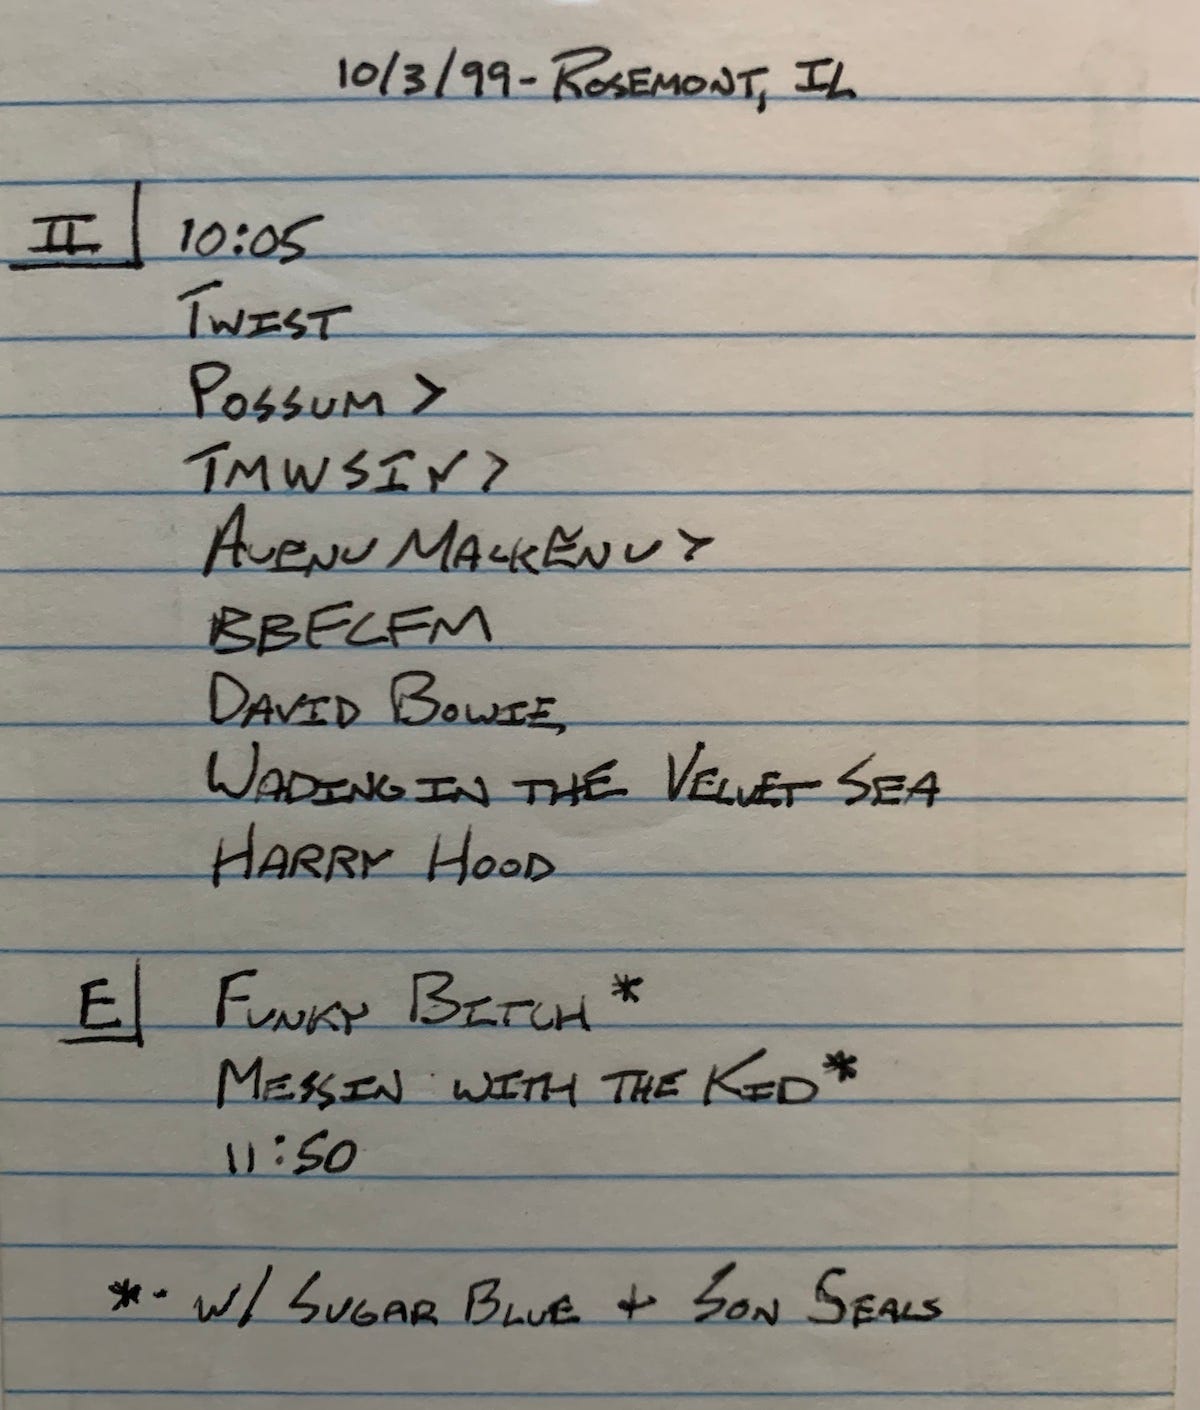 10/3/99 - ROSEMONT, IL
II 10:05
TWIST
POSSUM >
TMWSIY >
AVENU MALKENU >
BBFCFM
DAVID BOWIE
WADING IN THE VELVET SEA
HARRY HOOD
E FUNKY BITCH *
MESSIN WITH THE KID *
11:50
* - W/ SUGAR BLUE + SON SEALS